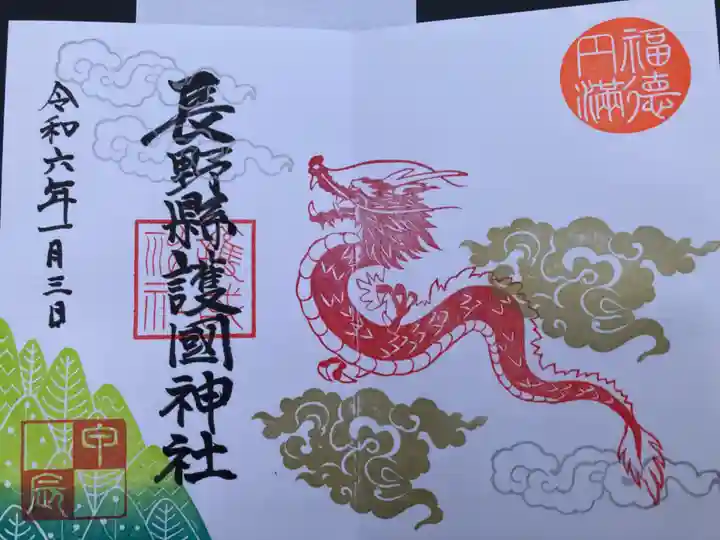 福徳
円満
長野縣護國神社
令和六年一月三日
甲
辰